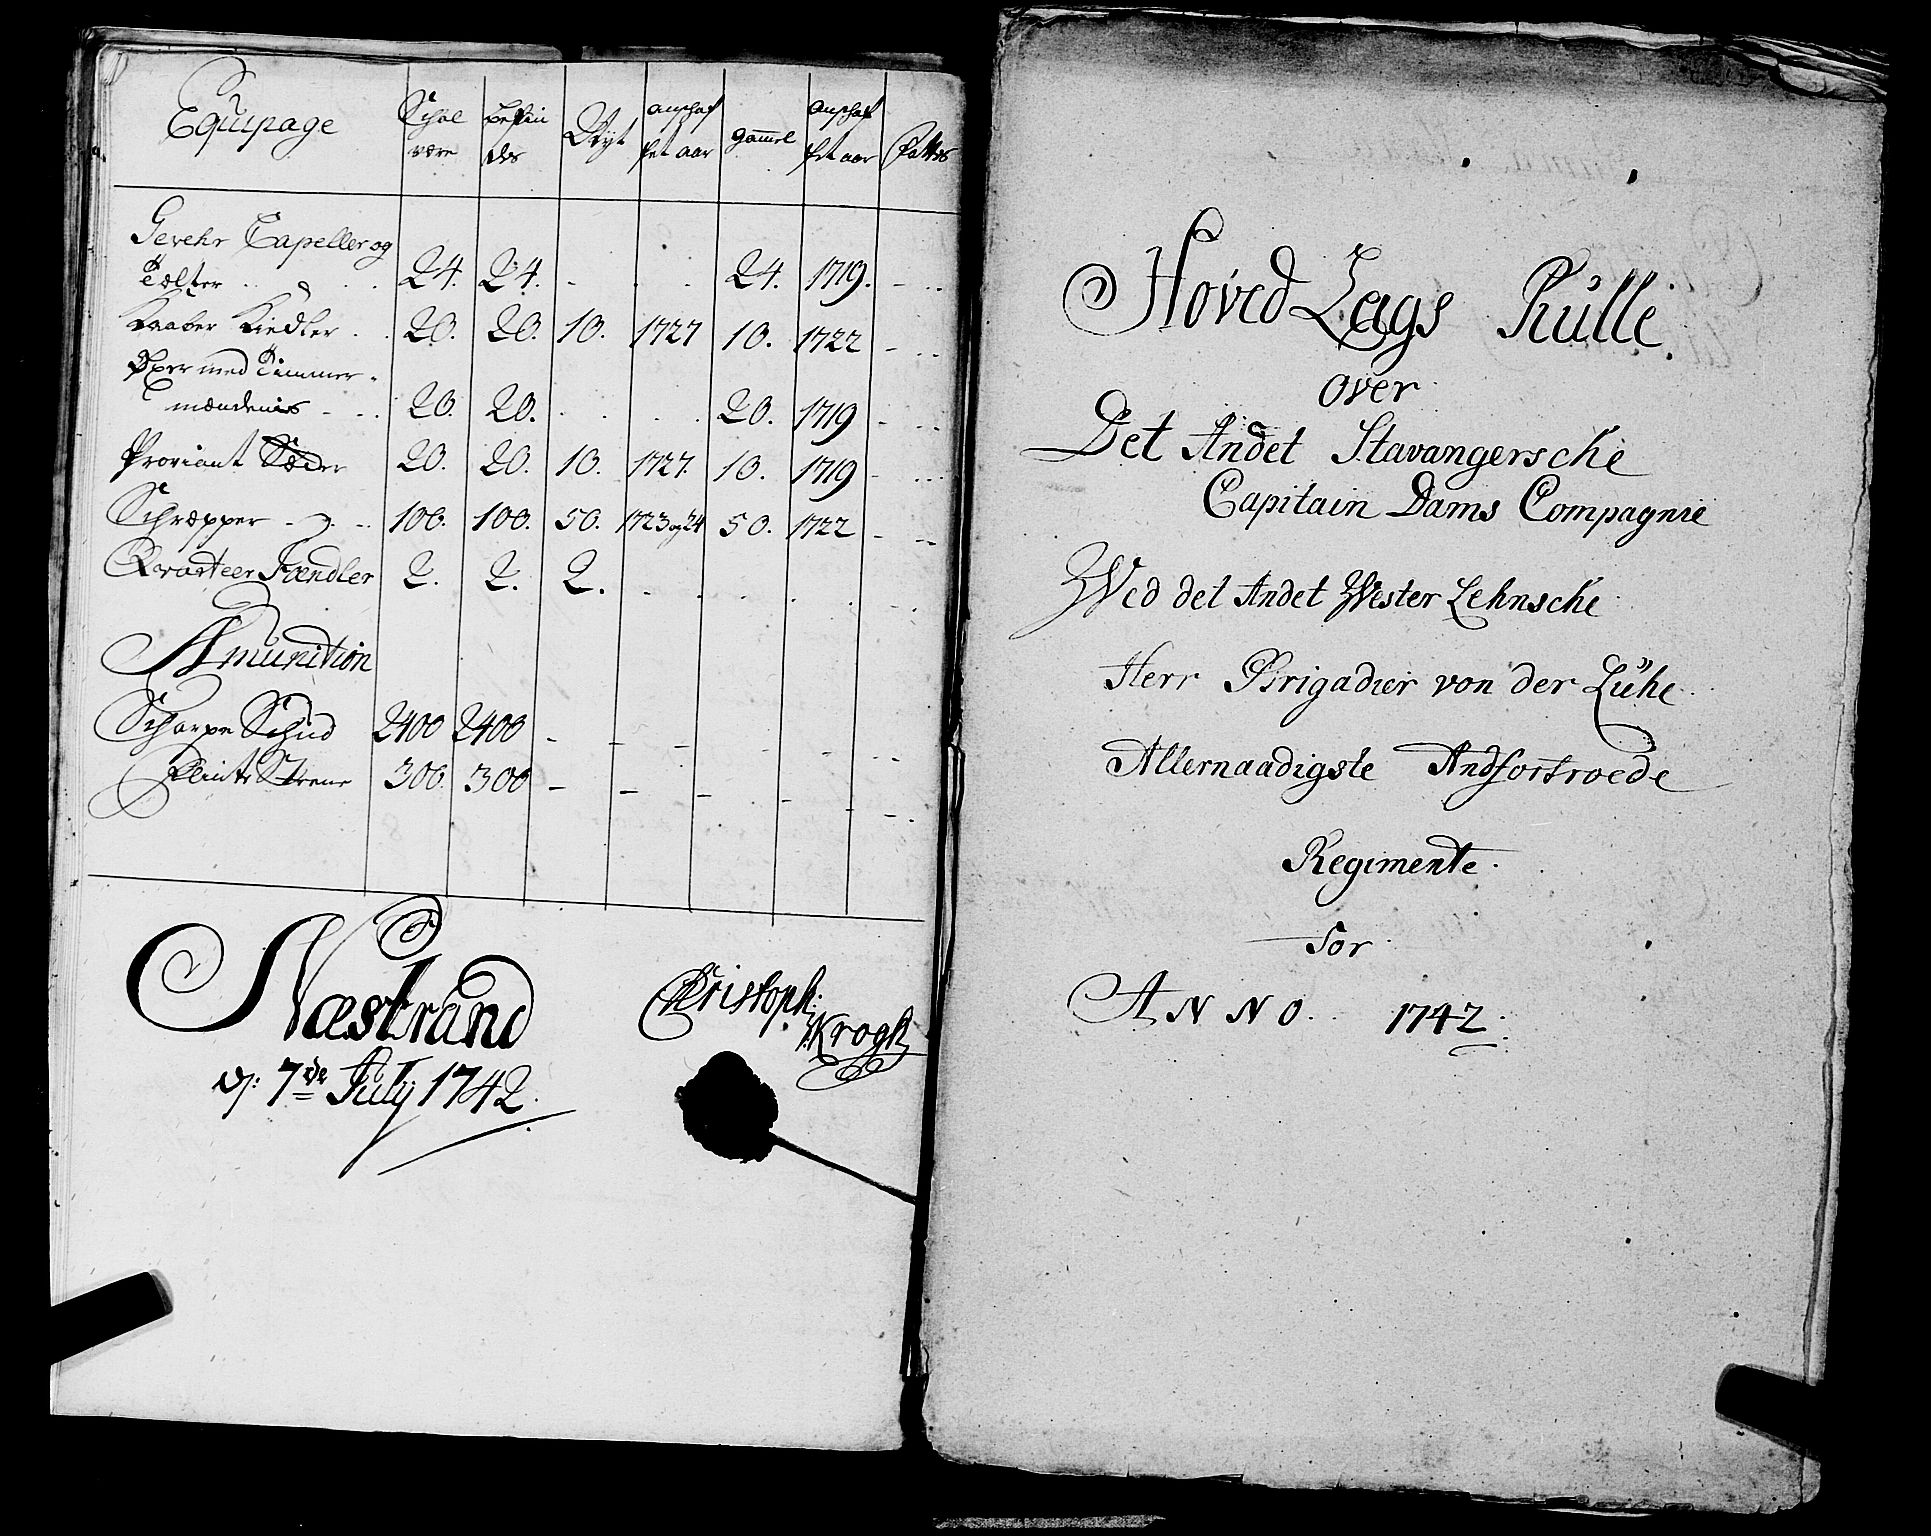 Equipage Schal være Befin des Nyt anschaf fet aar gam̄el anschaf fet aar Fattes
Gevehr Capeller og
Tælter 24. 24. - . . 24. 1719. - ..
Kaaber Kiedler 20. 20. 10. 1727 10. 1722 - ..
Øxer med Timmer-
mændenis 20. 20. . . . 20. 1719 - ..
Proviant Sæcker 20. 20. 10. 1727. 10. 1719 - ...
Schræpper 100. 100. 50. 1723 og 24 50. 1722 - --
Qvarteer Fændler 2. 2. 2. - . . . . - .
Amunition
Scharpe Schud 2400 2400 - - - . - - ..
Flinte Steene 300. 300 - - - - - - ..
Næstrand
d: 7de July 1742.
Christoph:
Krogh
Hoved Lags Rulle.
over
Det Andet Stavangersche
Capitain Dams Compagnie
Wed det Andet Wester Lehnsche
Herr Brigadier von der Lühe
Allernaadigste Andfortroede
Regimente.
for
ANNO. 1742.